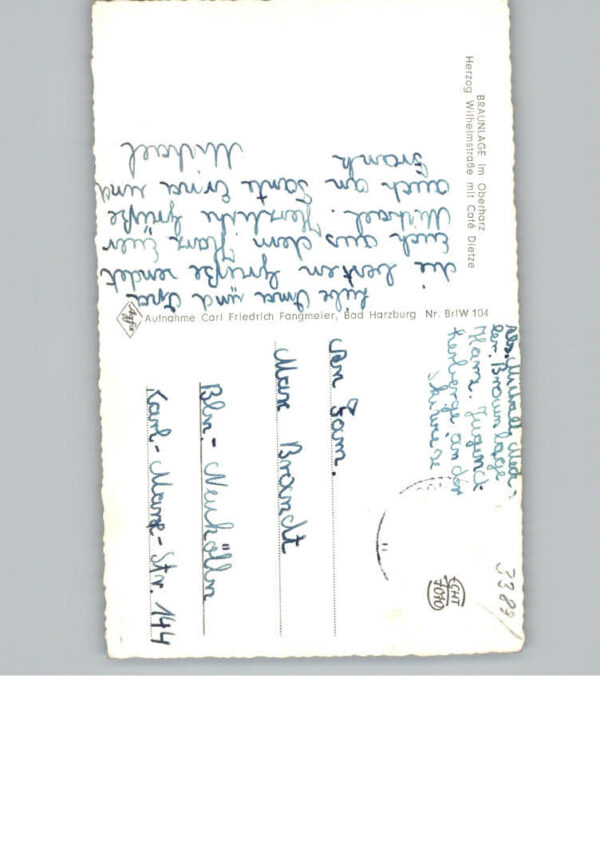 BRAUNLAGE im Oberharz
Herzog Wilhelmstraße mit Café Dietze
Liebe Oma und Opa!
die besten Grüße sendet
Euch aus dem Harz Euer
Michael. Herzliche Grüße
auch an Tante Erna und
Frank
Michael
Agfa
Aufnahme Carl Friedrich Fangmeier, Bad Harzburg Nr. BrlW 104
Abs. Michael
Braunlage
Harz. Jugend-
herberge an der
Skiwiese
3389
ECHT
FOTO
An Fam.
Max Brandt
Bln.-Neukölln
Karl-Marx-Str. 144